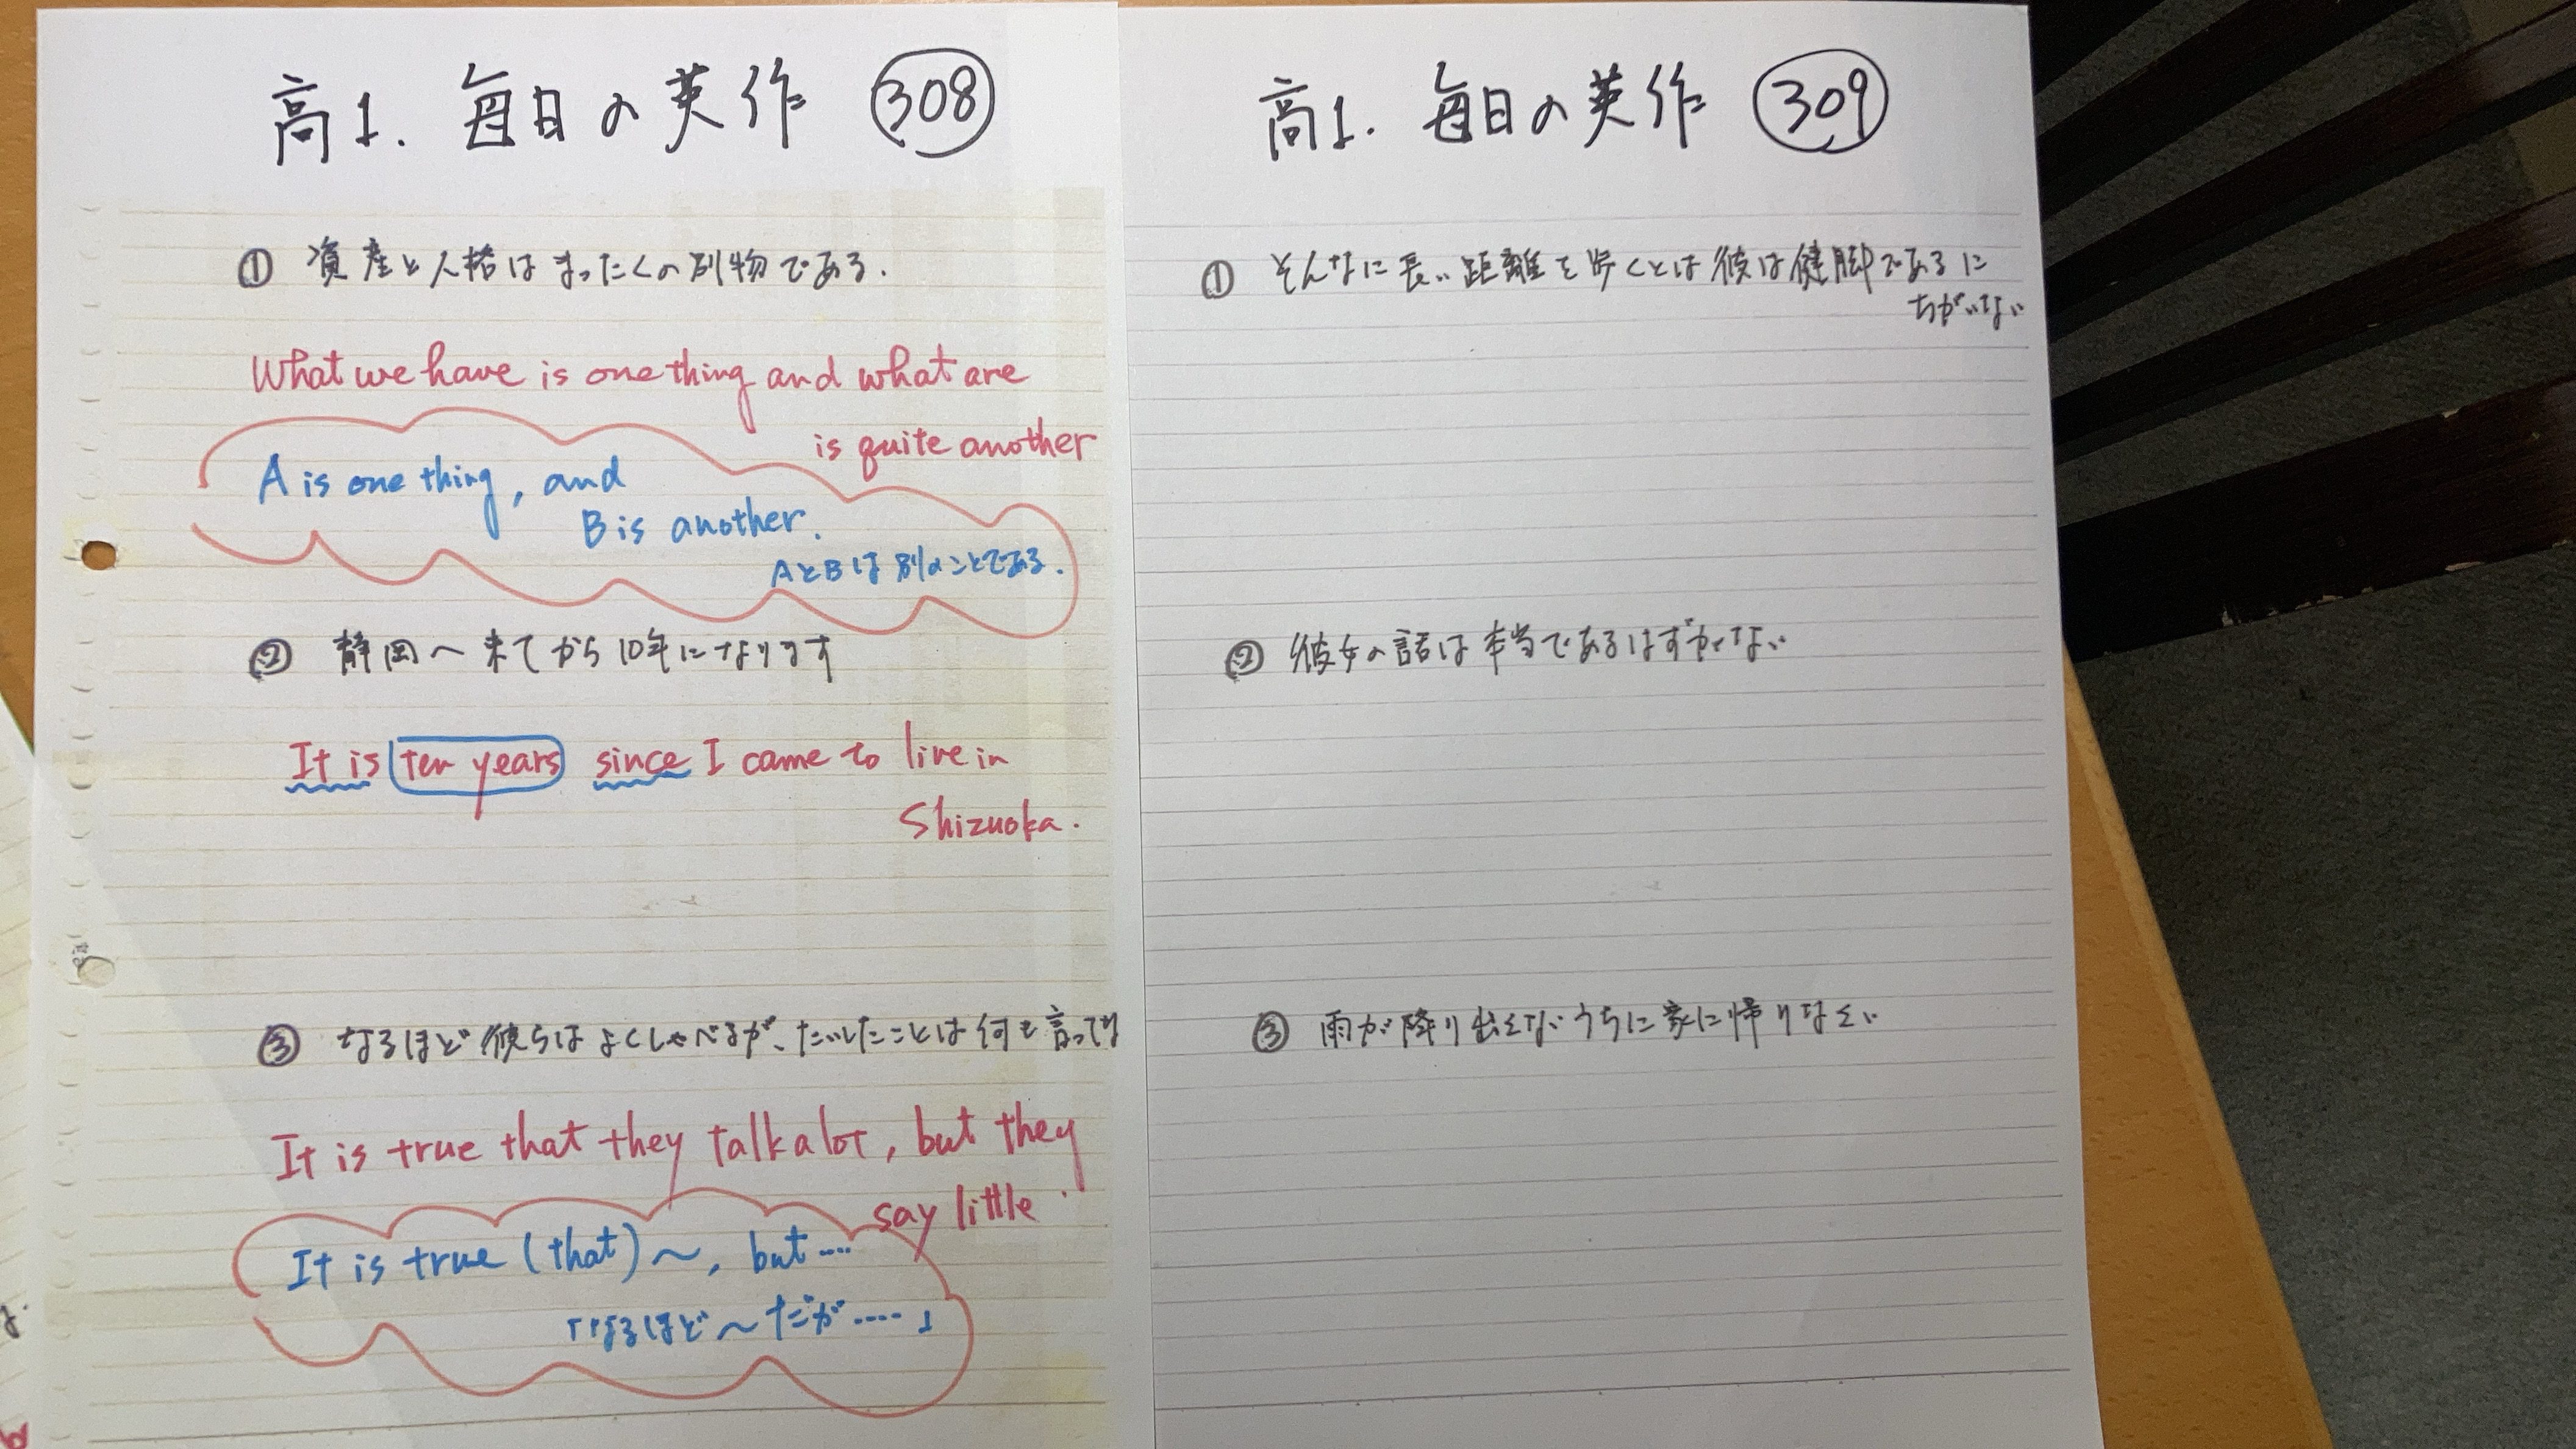 高1. 毎日の英作 308
① 資産と人格はまったくの別物である.
What we have is one thing and what are
is quite another
A is one thing, and
B is another.
AとBは別のことである.
② 静岡へ来てから10年になります
It is ten years since I came to live in
Shizuoka.
③ なるほど彼らはよくしゃべるが、たいしたことは何も言ってな
It is true that they talk a lot, but they
say little.
It is true (that) ～, but ....
「なるほど～だが....」
高1. 毎日の英作 309
① そんなに長い距離を歩くとは彼は健脚であるに
ちがいない
② 彼女の話は本当であるはずがない
③ 雨が降り出さないうちに家に帰りなさい